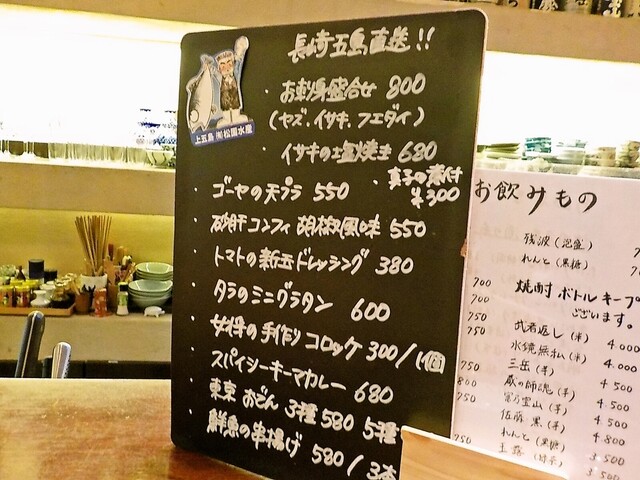 長崎五島直送!!
・お刺身盛合せ 800
(ヤズ、イサキ、フエダイ)
・イサキの塩焼き 680
・真子の煮付 ¥300
上五島 ㈲松園水産
・ゴーヤの天プラ 550
・砂肝コンフィ 胡椒風味 550
・トマトの新玉ドレッシング 380
・タラのミニグラタン 600
・女将の手作りコロッケ 300/1個
・スパイシーキーマカレー 680
・東京おでん 3種580 5種
・鮮魚の串揚げ 580/3本
お飲みもの
残波(泡盛)
れんと(黒糖)
焼酎 ボトルキープ
ございます。
700
700
750
750
武者返し(米) 4.000
水鏡無私(米) 4.000
750 三岳(芋) 4.500
800 蔵の師魂(芋) 4.500
750 富乃宝山(芋) 4.500
佐藤 黒(芋) 4.800
れんと(黒糖) 3.500
750